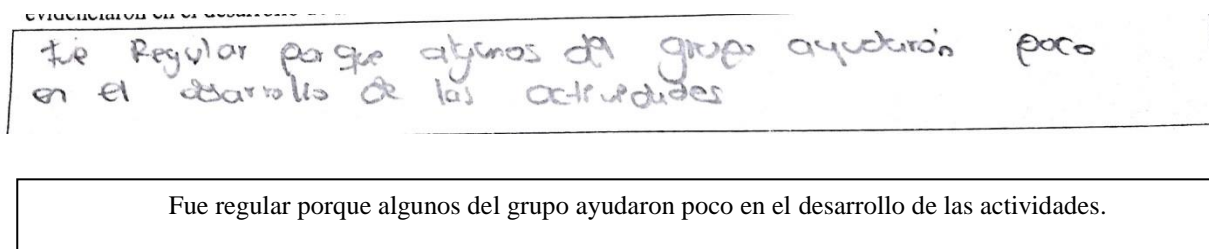 evidenciaron en el desarrollo de
fue Regular por que algunos del grupo ayudarón poco
en el desarrollo de las actividades
Fue regular porque algunos del grupo ayudaron poco en el desarrollo de las actividades.